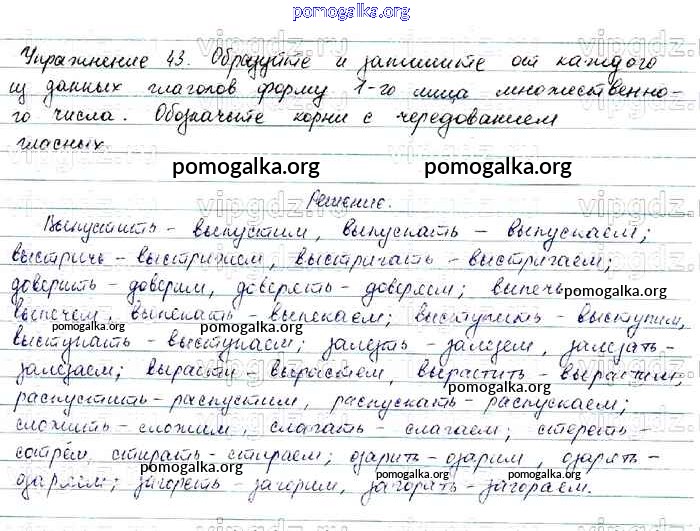 pomogalka.org
Упражнение 43. Образуйте и запишите от каждого
из данных глаголов форму 1-го лица множественно-
го числа. Обозначьте корни с чередованием
гласных.
pomogalka.org pomogalka.org
Решение.
Выпустить - выпустим, выпускать - выпускаем;
выстричь - выстрижем, выстригать - выстригаем;
доверить - доверим, доверять - доверяем; выпечь
pomogalka.org
выпечем, выпекать - выпекаем; выступить - выступим,
pomogalka.org pomogalka.org
выступать - выступаем; залезть - залезем, залезать -
залезаем; вырасти - вырастем, вырастить - вырастим;
pomogalka.org
распустить - распустим, распускать - распускаем;
сложить - сложим, слагать - слагаем; стереть -
сотрём, стирать - стираем; озарить - озарим, озарять -
pomogalka.org pomogalka.org
озаряем; загореть - загорим, загорать - загораем.
pomogalka.org